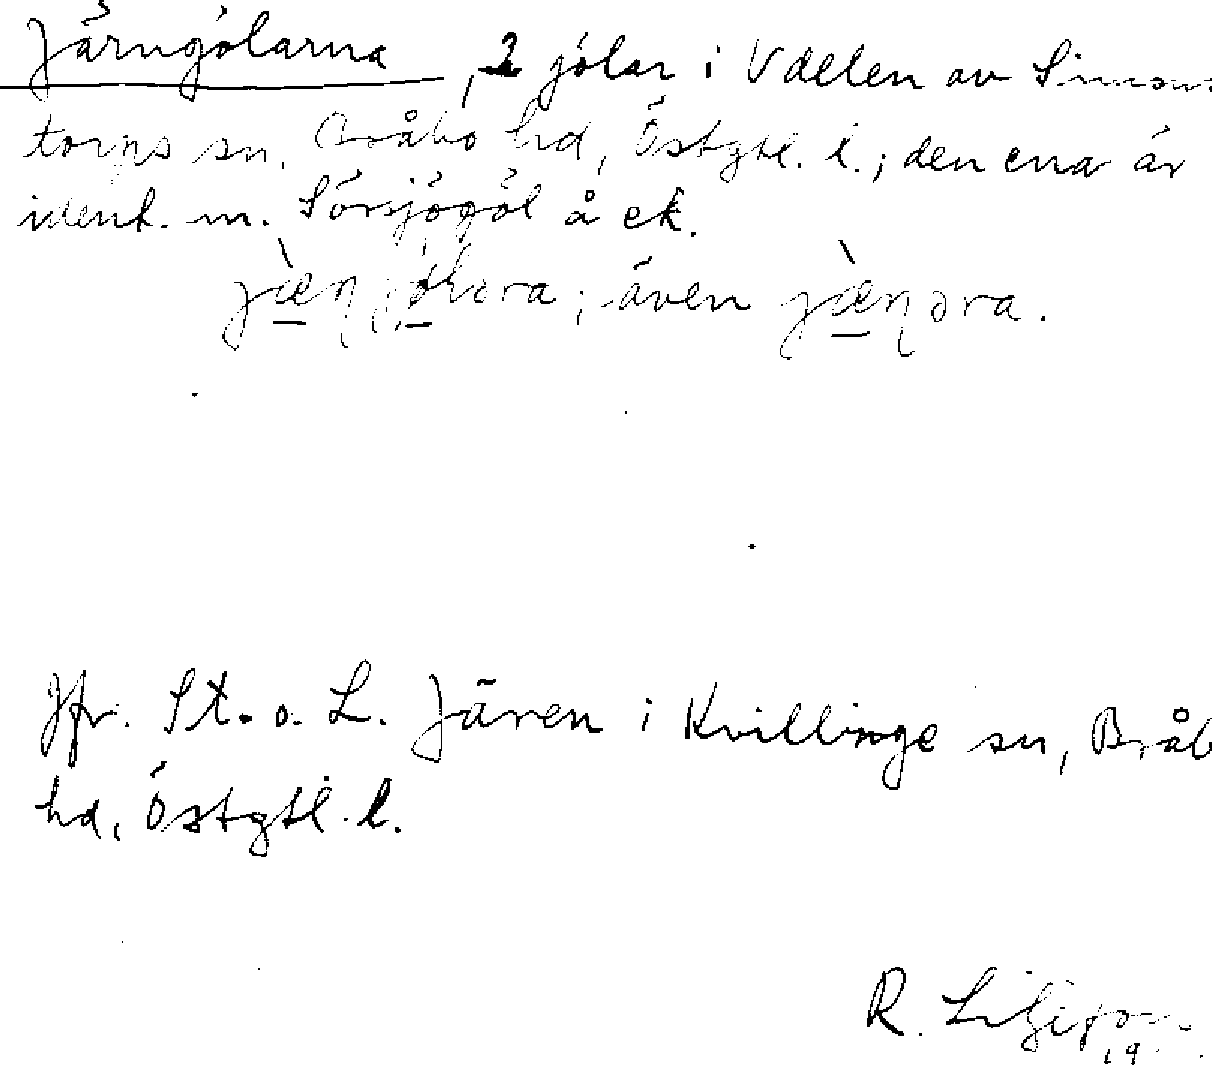 Järngölarna, 2 gölar i V delen av Simons-
torps sn, Bråbo hd, Östgtl. l.; den ena är
ident. m. Sörsjögöl å ek.
även
Jfr. St. o. L. Jären i Kvillinge sn, Bråb
hd, Östgtl. l.
R.
19